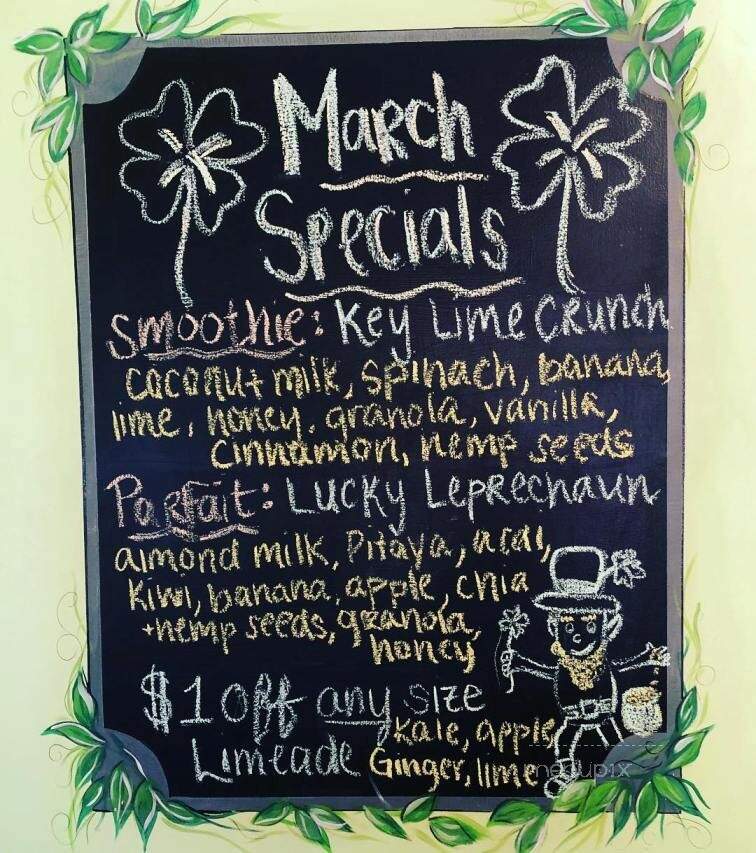 March
Specials
Smoothie: Key Lime Crunch
coconut milk, spinach, banana,
lime, honey, granola, vanilla,
cinnamon, hemp seeds
Parfait: Lucky Leprechaun
almond milk, pitaya, acai,
kiwi, banana, apple, chia
+hemp seeds, granola,
honey
$1 off any size
Limeade Kale, apple,
Ginger, lime